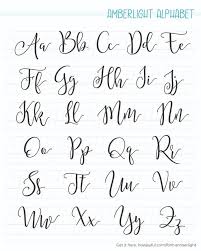 AMBERLIGHT ALPHABET
Aa Bb Cc Dd Ee
Ff Gg Hh Ii Jj
Kk Ll Mm Nn
Oo Pp Qq Rr
Ss Tt Uu Vv
Ww Xx Yy Zz
Get it here: